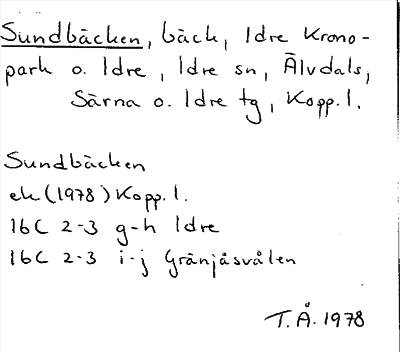 Sundbäcken, bäck, Idre Krono-
park o. Idre, Idre sn, Älvdals,
Särna o. Idre tg, Kopp. l.
Sundbäcken
ek (1978) Kopp. l.
16C 2-3 g-h Idre
16C 2-3 i-j Gränjåsvålen
T.Å. 1978